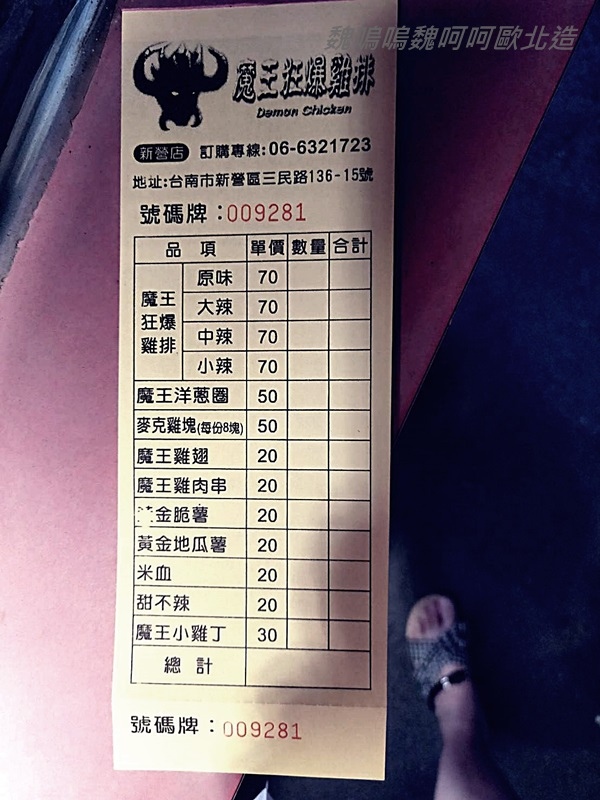 魏嗚嗚魏呵呵歐北造
魔王狂爆雞排
Demon Chicken
新營店 訂購專線:06-6321723
地址:台南市新營區三民路136-15號
號碼牌：009281
品項 單價 數量 合計
魔王狂爆雞排 原味 70
大辣 70
中辣 70
小辣 70
魔王洋蔥圈 50
麥克雞塊(每份8塊) 50
魔王雞翅 20
魔王雞肉串 20
金脆薯 20
黃金地瓜薯 20
米血 20
甜不辣 20
魔王小雞丁 30
總計
號碼牌：009281